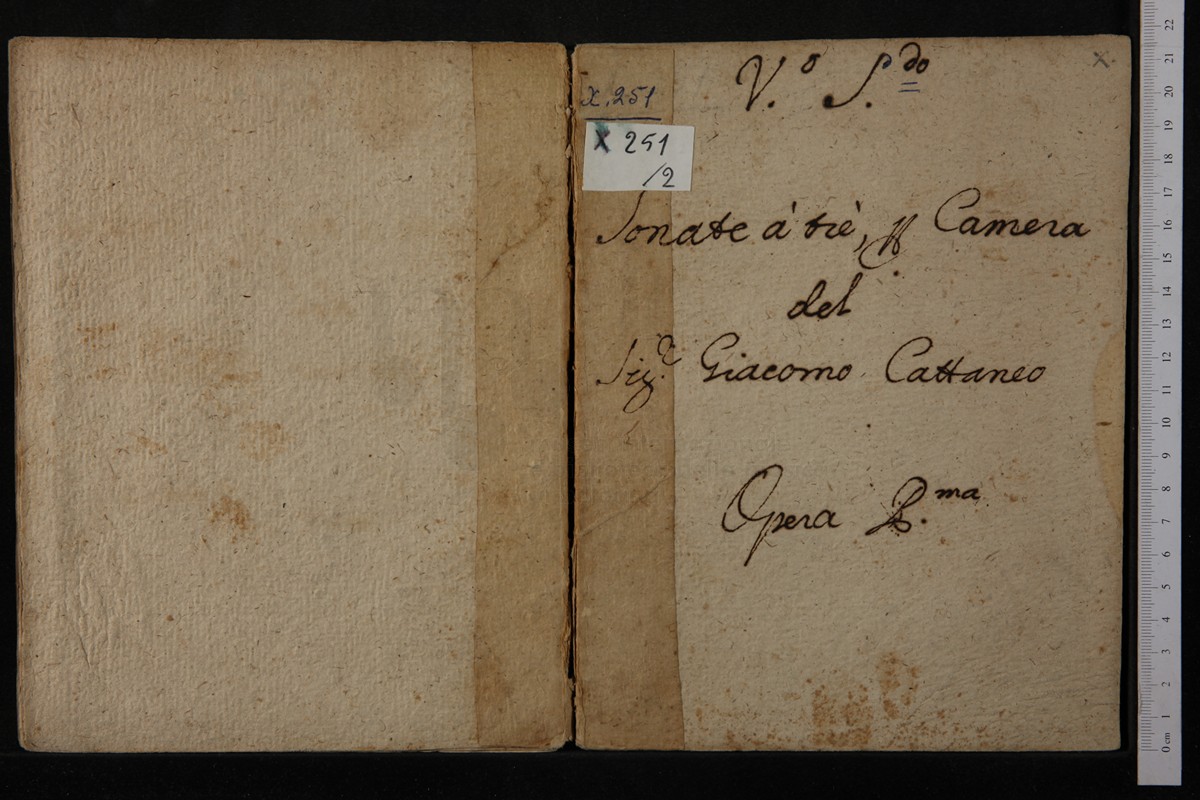 X. 251
X 251
/2
V.º S.do
Sonate à trè, per Camera
del
Sig.r Giacomo Cattaneo
Opera P.ma
X.
0 cm 1 2 3 4 5 6 7 8 9 10 11 12 13 14 15 16 17 18 19 20 21 22